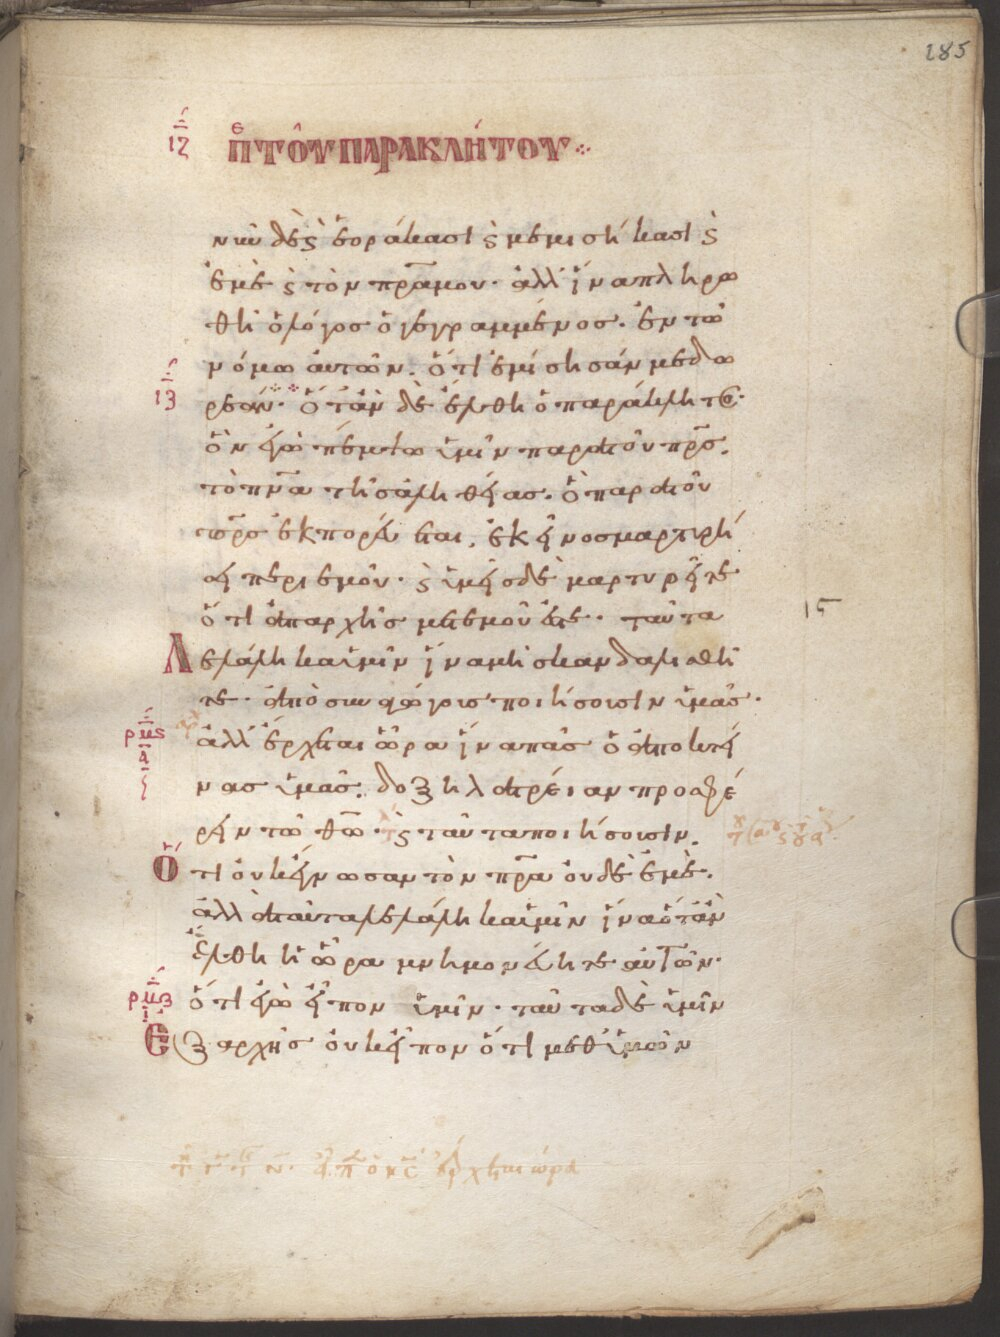 185
ιζ
Π͞ε ΤΟΥ ΠΑΡΑΚΛΗΤΟΥ
νῦν δὲ ϗ ἑοράκασι ϗ μεμισήκασι ϗ
ἐμὲ ϗ τὸν πρ͞α μου· ἀλλ ἵνα πληρω
θῆ ὁ λόγος ὁ γεγραμμένος· ἐν τῶ
νόμω ἀυτῶν· ὅτι ἐμίσησάν με δω
ιη
ρεάν· Ὅταν δὲ ἔλθη ὁ παράκλητο·
ὃν ἐγὼ πέμψω ὑμῖν παρα τοῦ πρ͞ς·
τὸ πν͞α τῆς ἀληθείας· ὃ παρα τοῦ
πρ͞ς ἐκπορέυεται, ἐκεῖνος μαρτιρή
σει περι εμοῦ· ϗ ὑμεῖς δὲ μαρτυρεῖτε
15
ὅτι ἀπαρχῆς μετεμοῦ ἐστε· ταῦτα
λελάληκα ὑμῖν ἵνα μὴ σκανδαλισθῆ
τε· ἀπὸ συναγώγους ποιήσουσιν ὑμᾶς·
ρμς
ἀλλ ἔρχεται ὥρα ἵνα πᾶς ὁ ἀποκτεί
νας ὑμᾶς· δόξη λατρείαν προσφέ
ρειν τῶ θῶ· ϗ ταῦτα ποιήσουσιν·
Ὅτι οὐκ έγνωσαν τὸν πρ͞α ὀυδὲ ἐμὲ·
ἀλλα ταῦτα λελάληκα ὑμῖν ἵνα ὅταν
ἔλθη ἡ ὥρα μνημονέυητε ἀυτῶν·
ρμζ
ὅτι ἐγὼ εἶπον ὑμῖν· ταῦτα δὲ ὑμῖν
Ἐξ αρχῆς οὐκ εἶπον ὅτι μεθ ὑμῶν
ἔρχεται ὥρα